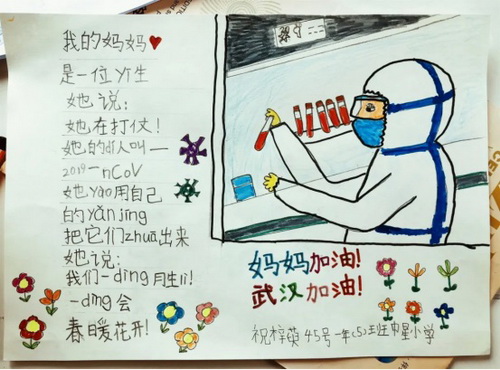 我的妈妈
是一位yī生
她说：
她在打仗！
她的dí人叫—
2019-nCoV
她yào用自己
的yǎnjing
把它们zhuā出来
她说：
我们一dìng胜lì!
一dìng会
春暖花开!
妈妈加油!
武汉加油!
祝梓 45号 一年(5)班 中星小学